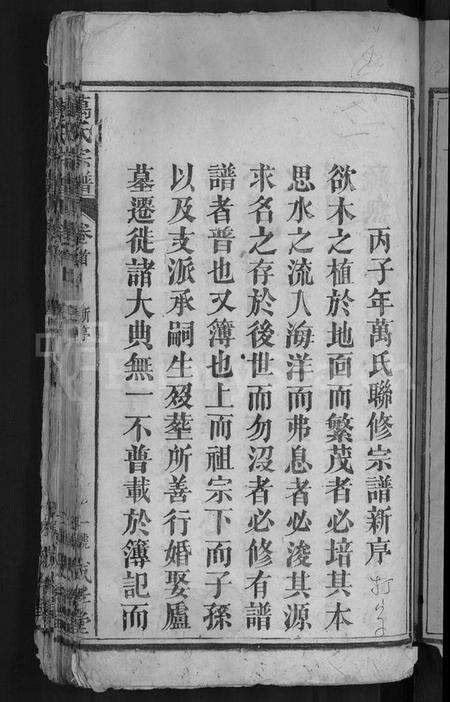 丙子年萬氏聯修宗譜新序
欲木之植於地面而繁茂者必培其本
思水之流入海洋而弗息者必浚其源
求名之存於後世而勿沒者必修有譜
譜者普也又簿也上而祖宗下而子孫
以及支派承嗣生歿塟所善行婚娶廬
墓遷徙諸大典無一不普載於簿記而
萬氏宗譜
卷首
新序